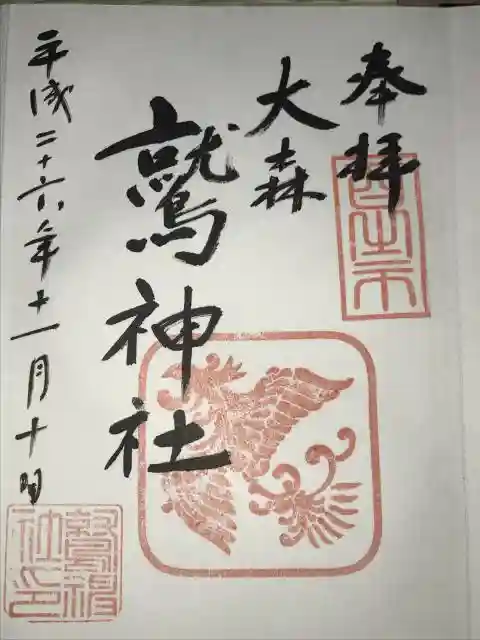 奉拝
大森
鷲神社
平成二十六年十一月十日
酉之市
鷲神社印